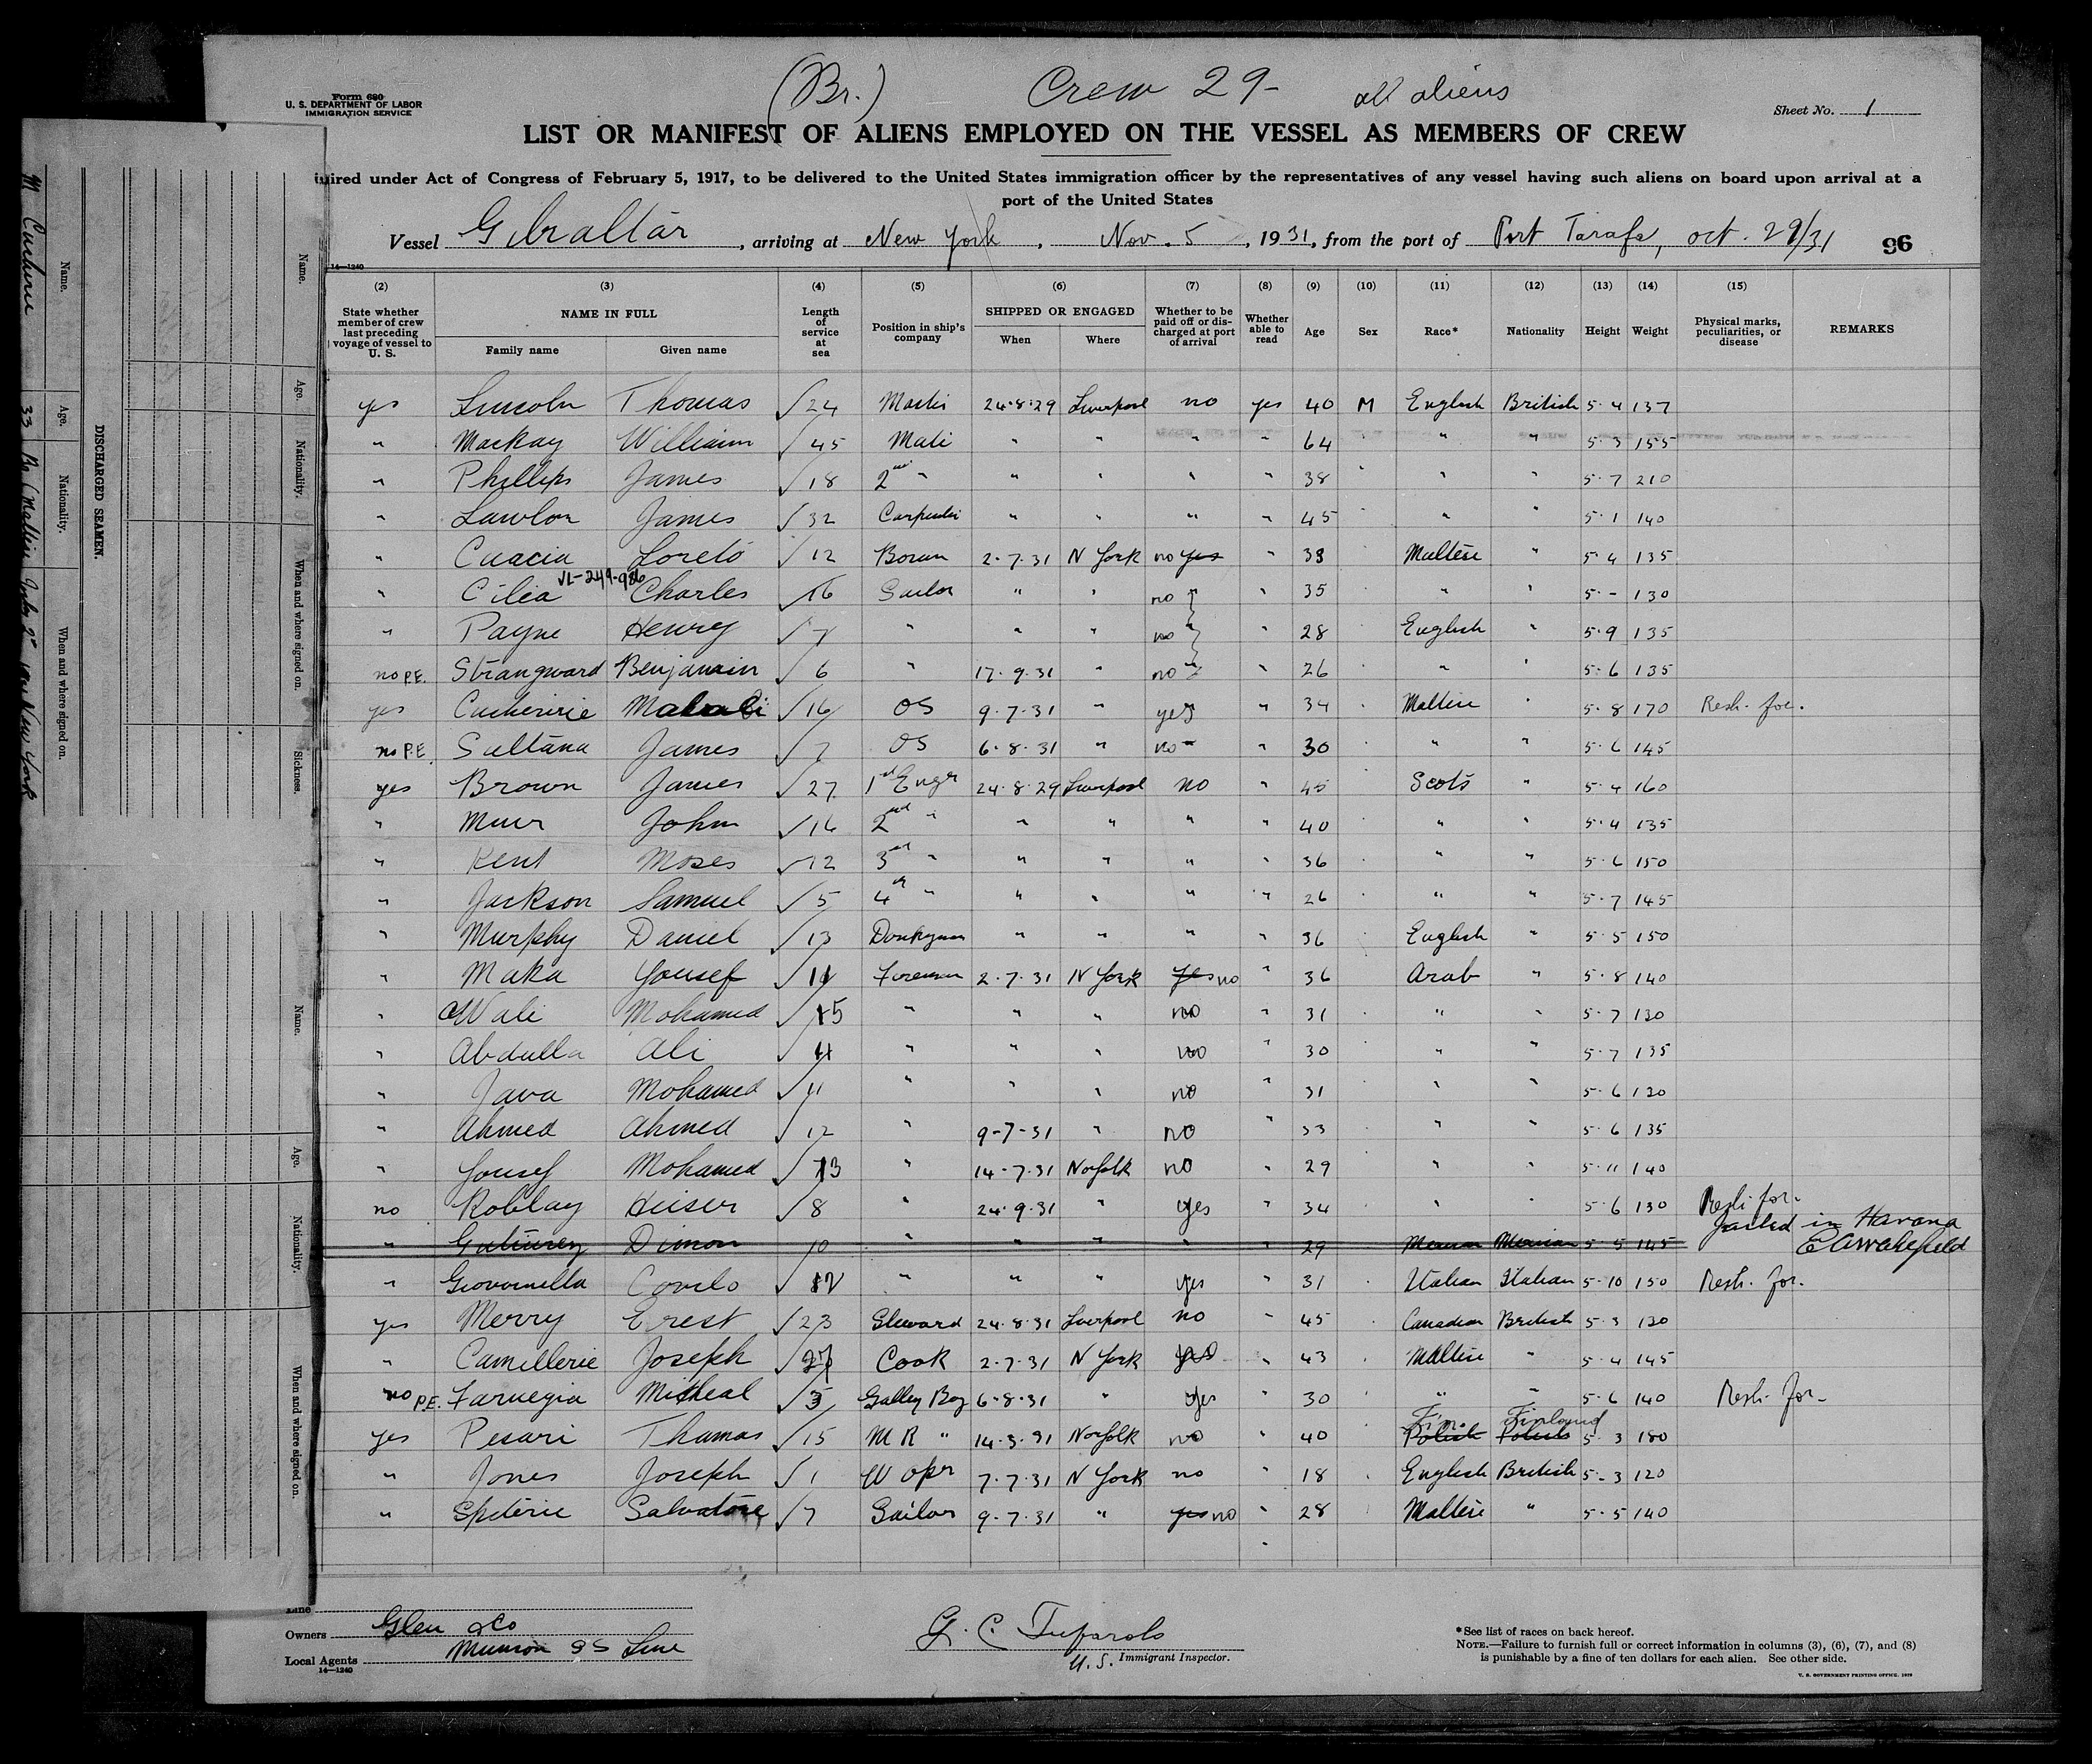 Form 680
U. S. DEPARTMENT OF LABOR
IMMIGRATION SERVICE
(Br.) Crew 29- all aliens
Sheet No. 1
LIST OR MANIFEST OF ALIENS EMPLOYED ON THE VESSEL AS MEMBERS OF CREW
uired under Act of Congress of February 5, 1917, to be delivered to the United States immigration officer by the representatives of any vessel having such aliens on board upon arrival at a
port of the United States
Vessel Gibraltar, arriving at New York, Nov. 5, 1931, from the port of Port Tarafa, oct. 29/31 96
14—1240
(2) (3) (4) (5) (6) (7) (8) (9) (10) (11) (12) (13) (14) (15)
State whether member of crew last preceding voyage of vessel to U. S. NAME IN FULL Family name Given name Length of service at sea Position in ship's company SHIPPED OR ENGAGED When Where Whether to be paid off or discharged at port of arrival Whether able to read Age Sex Race* Nationality Height Weight Physical marks, peculiarities, or disease REMARKS
yes Lincoln Thomas √ 24 Master 24·8·29 Liverpool no yes 40 M English British 5·4 137
" Mackay William √ 45 Mate " " " " 64 " " 5·3 155
" Phillips James √ 18 2nd " " " " " 38 " " 5·7 210
" Lawlor James √ 32 Carpenter " " " " 45 " " 5·1 140
" Cuacia Loreto √ 12 Bosun 2·7·31 N York no yes " 38 Maltese " 5·4 135
VL-249-986
" Cilea Charles √ 16 Sailor " " no " " 35 " " 5·- 130
" Payne Henry √ 7 " " " no " " 28 English " 5·9 135
no P.E. Strangward Benjamin √ 6 " 17·9·31 " no " " 26 " " 5·6 135
yes Cuchererie √ 16 OS 9·7·31 " yes " 34 Maltese " 5·8 170 Resh. for.
no P.E. Sultana James √ 7 OS 6·8·31 " no " 30 " " 5·6 145
yes Brown James √ 27 1st Engr 24·8·29 Liverpool no " 45 Scots " 5·4 160
" Muir John √ 16 2nd " " " " " 40 " " 5·4 135
" Kent Moses √ 12 3rd " " " " " 36 " " 5·6 150
" Jackson Samuel √ 5 4th " " " " " 26 " " 5·7 145
" Murphy Daniel √ 13 Donkyman " " " " 36 English " 5·5 150
" Maka Yousef √ 11 Fireman 2·7·31 N York yes no " 36 Arab " 5·8 140
" Wali Mohamed √ 15 " " " no " 31 " " 5·7 130
" Abdulla Ali √ 11 " " " no " 30 " " 5·7 135
" Java Mohamed √ 11 " " " no " 31 " " 5·6 120
" Ahmed Ahmed √ 12 " 9-7-31 " no " 33 " " 5·6 135
" Yousef Mohamed √ 13 " 14-7-31 Norfolk no " 29 " " 5·11 140
no Roblay Heiser √ 8 " 24·9·31 " yes " 34 " " 5·6 130 Resh. for.
" Dimon 10 " " " " " 29 5·5 145 Jailed in Havana
E A Wakefield
" Giovornella Covelo √ 12 " " " yes " 31 Italian Italian 5·10 150 Resh. for.
yes Merry Erest √ 23 Steward 24·8·31 Liverpool no " 45 Canadian British 5·3 120
" Camillerie Joseph √ 27 Cook 2·7·31 N York " 43 Maltese " 5·4 145
no P.E. Farnegia Micheal √ 5 Galley Boy 6·8·31 " yes " 30 " " 5·6 140 Resh. for.
Fin. Finland
yes Pesari Thomas √ 15 M R " 14·3·31 Norfolk no " 40 Polish Polish 5·3 180
" Jones Joseph √ 1 W opr 7·7·31 N York no " 18 English British 5·3 120
" Spiterie Salvatore √ 7 Sailor 9·7·31 " yes no " 28 Maltese " 5·5 140
Line
Owners Glen & Co
Local Agents Munson SS Line
14—1240
U. S. Immigrant Inspector.
*See list of races on back hereof.
NOTE.—Failure to furnish full or correct information in columns (3), (6), (7), and (8)
is punishable by a fine of ten dollars for each alien. See other side.
U. S. GOVERNMENT PRINTING OFFICE
DISCHARGED SEAMEN.
Name. Age. Nationality. When and where signed on.
33 Br (Maltese) New York
Name. Age. Nationality. When and where signed on. Sickness.
Name. Age. Nationality. When and where signed on.